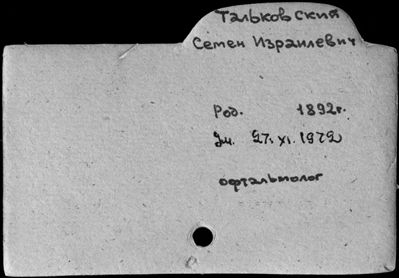 Тальковский
Семен Израилевич
Род. 1892г.
Ум. 27.XI.1972
офтальмолог